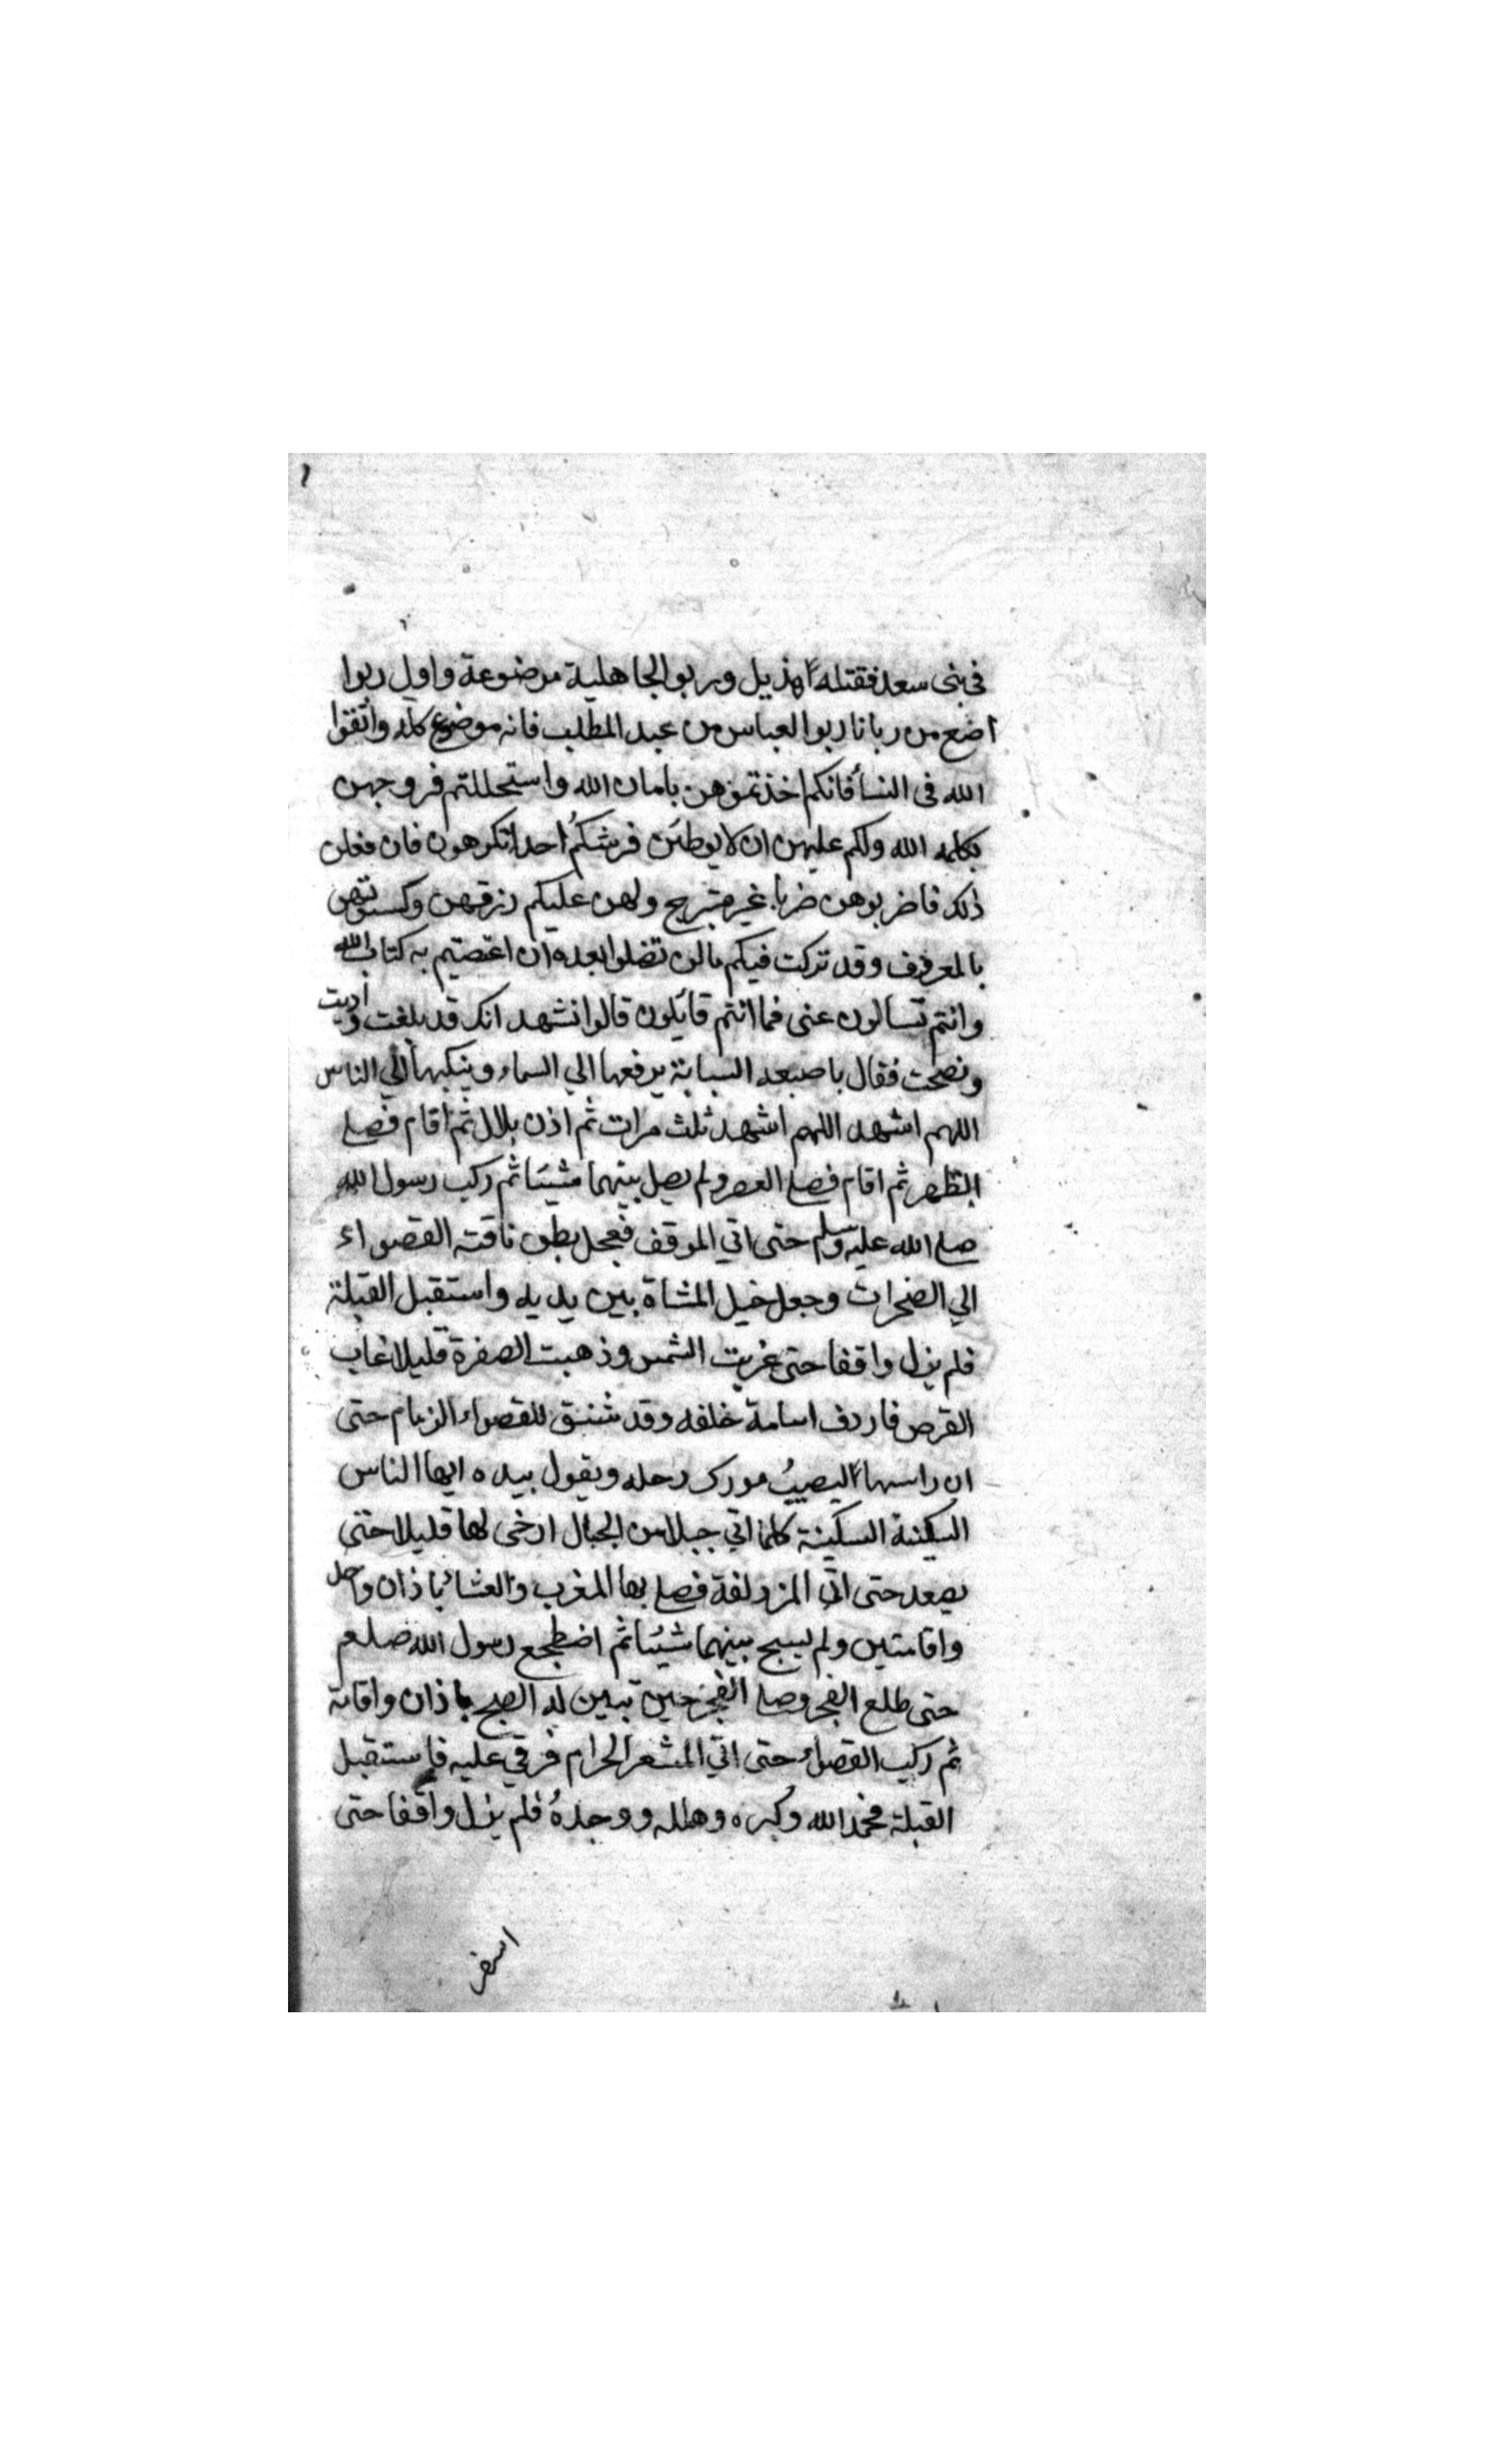 في بني سعد فقتله هذيل وربوا الجاهلية موضوعة واول ربوا
اضع من ربانا ربوا العباس من عبد المطلب فانه موضوع كله واتقوا
الله في النسأ فانكم اخذتموهن بامان الله واستحللتم فروجهن
بكلمه الله ولكم عليهن ان لا يوطئن فرشكم احدا تكرهون فان فعلن
ذلك فاضربوهن ضربا غير مبرح ولهن عليكم رزقهن وكسوتهن
بالمعروف وقد تركت فيكم ما لن تضلوا بعده ان اعتصتيم به كتاب الله
وانتم تسالون عني فما انتم قائلون قالوا نشهد انك قد بلغت وأديت
ونصحت فقال باصبعه السبابة يرفعها الي السماء وينكبها الي الناس
اللهم اشهد اللهم اشهد ثلث مرات ثم اذن بلال ثم اقام فصلي
الظهر ثم اقام فصلي العصر ولم يصل بينهما شيئا ثم ركب رسول الله
صلي الله عليه وسلم حتى اتي الموقف فجعل بطن ناقته القصواء
الي الصخرات وجعل خيل المشاة بين يديه واستقبل القبلة
فلم يزل واقفا حتى غربت الشمس وذهبت الصفرة قليلا غاب
القرص فاردف اسامة خلفه وقد شنق للقصواء الزمام حتى
ان راسها ليصيبُ مورك رحله ويقول بيده ايها الناس
السكينة السكينة كلما اتي جبلا من الجبال ارخى لها قليلا حتى
يصعد حتى اتي المزدلفة فصلي بها المغرب والعشائباذان واحد
واقامتين ولم يسبح بينهما شيئا ثم اضطجع رسول الله صلعم
حتى طلع الفجر وصلي الفجر حين تبين له الصبح باذان واقامة
ثم ركب القصواء حتى اتي المشعر الحرام فرقي عليه فاستقبل
القبلة فحمد الله وكبره وهلله ووحدهُ فلم يزل واقفا حتى
اسفر